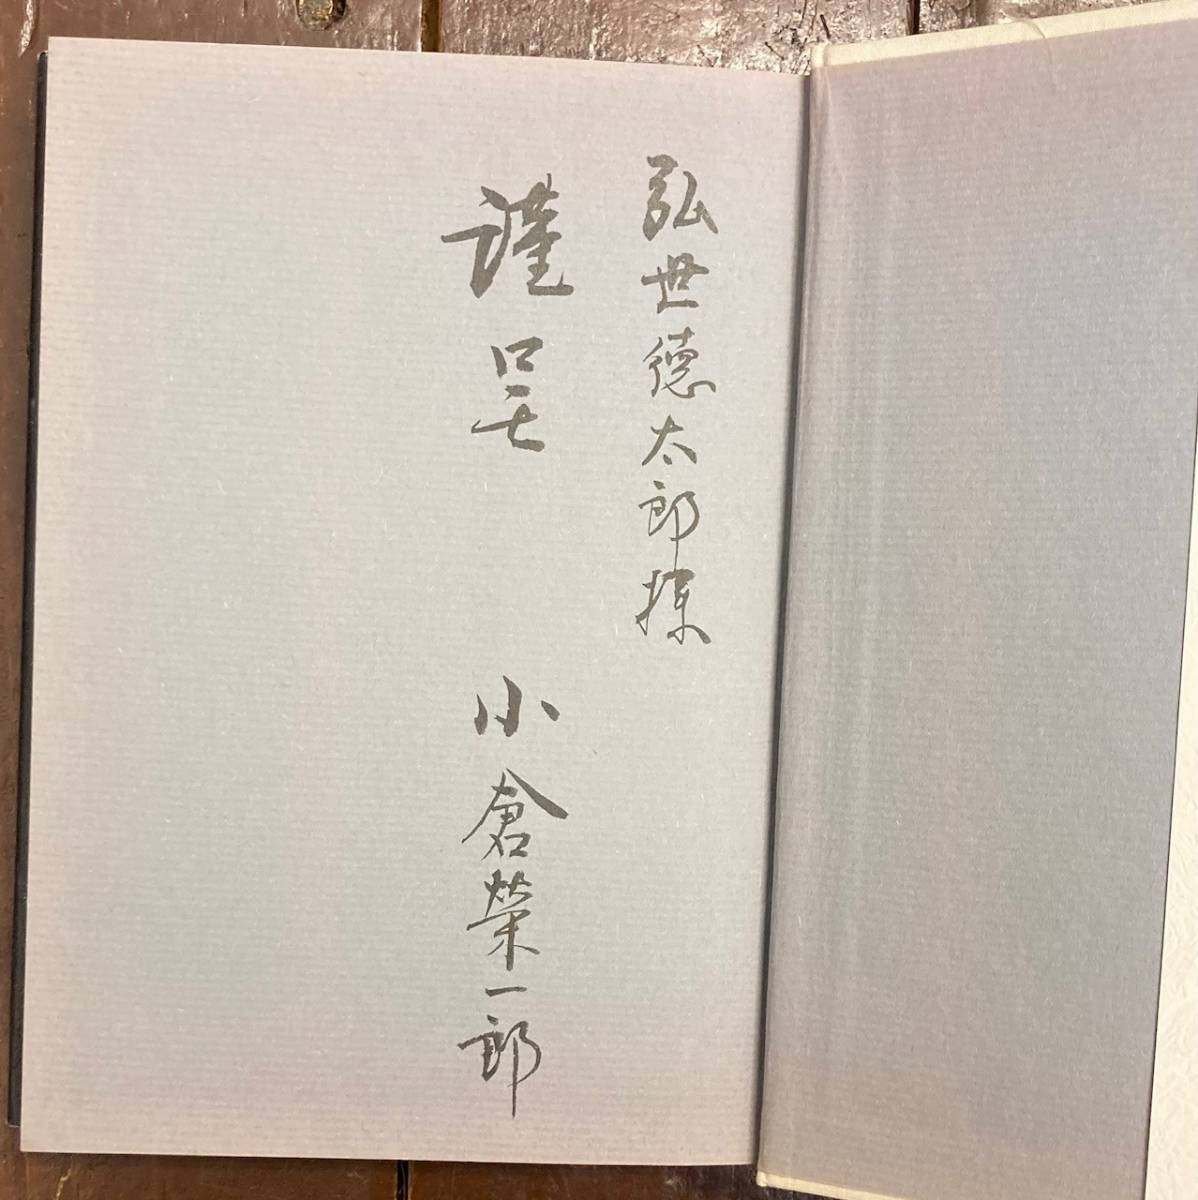 弘世徳太郎様
謹呈
小倉榮一郎